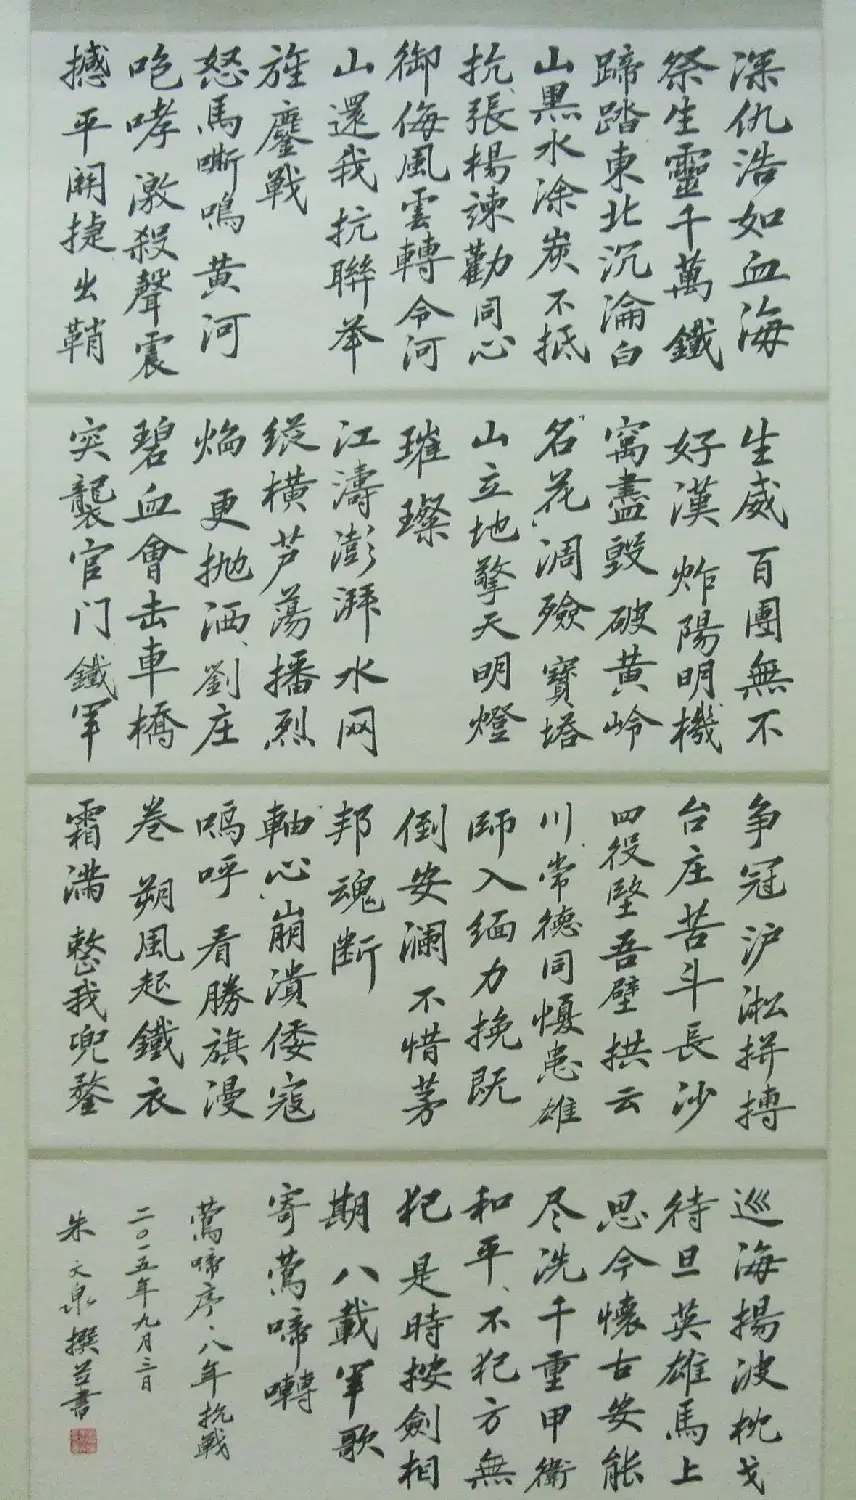 深仇浩如血海
祭生靈千萬鐵
蹄踏東北沉淪白
山黑水涂炭不抵
抗張楊諫勸同心
御侮風雲轉令河
山還我抗聯举
旌鏖戰
怒馬嘶鳴黄河
咆哮激殺聲震
撼平關捷出鞘
生威百團無不
好漢炸陽明機
窝盡毀破黄岭
名花凋殮寶塔
山立地擎天明燈
璀璨
江濤澎湃水网
纵横芦蕩播烈
焰更抛洒劉庄
碧血會击車橋
突襲官门鐵軍
争冠沪淞拼搏
台庄苦斗長沙
四役堅吾壁拱云
川常德同憂患雄
師入缅力挽既
倒安澜不惜茅
邦魂断
軸心崩潰倭寇
嗚呼看勝旗漫
卷朔風起鐵衣
霜满整我兜鍪
巡海揚波枕戈
待旦英雄馬上
思今懷古安能
尽洗千重甲衛
和平不犯方無
犯是時按劍相
期八載軍歌
寄鶯啼囀
鶯啼序·八年抗戰
二〇一五年九月三日
朱文泉撰并書